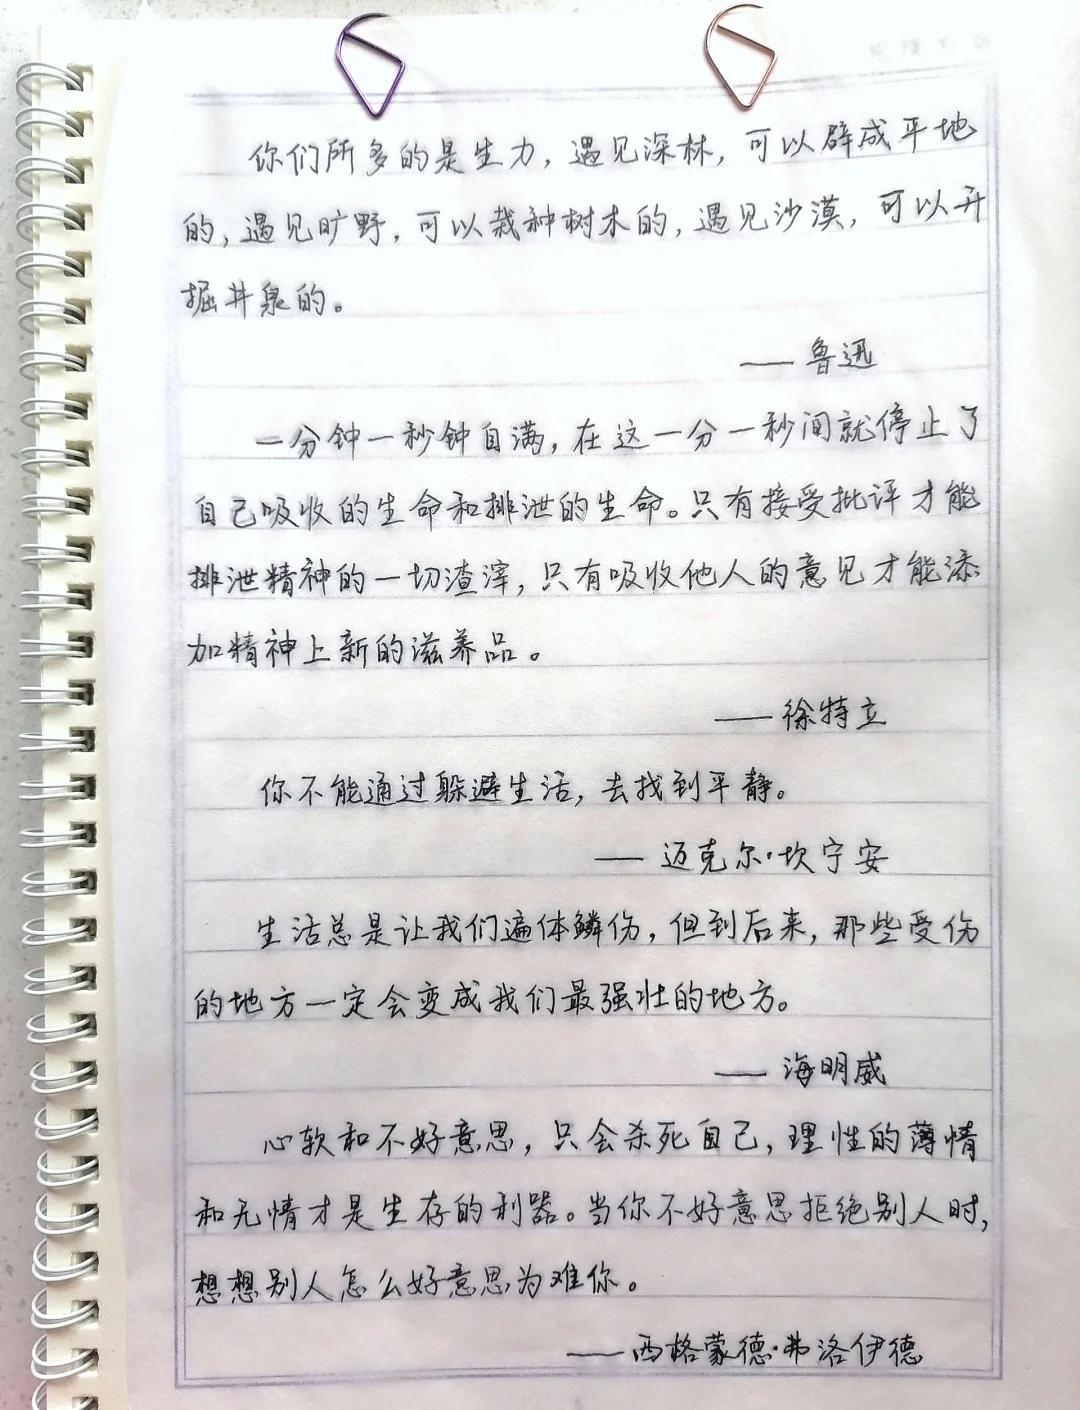 你们所多的是生力，遇见深林，可以辟成平地
的，遇见旷野，可以栽种树木的，遇见沙漠，可以开
掘井泉的。
——鲁迅
一分钟一秒钟自满，在这一分一秒间就停止了
自己吸收的生命和排泄的生命。只有接受批评才能
排泄精神的一切渣滓，只有吸收他人的意见才能添
加精神上新的滋养品。
——徐特立
你不能通过躲避生活，去找到平静。
——迈克尔·坎宁安
生活总是让我们遍体鳞伤，但到后来，那些受伤
的地方一定会变成我们最强壮的地方。
——海明威
心软和不好意思，只会杀死自己，理性的薄情
和无情才是生存的利器。当你不好意思拒绝别人时，
想想别人怎么好意思为难你。
——西格蒙德·弗洛伊德